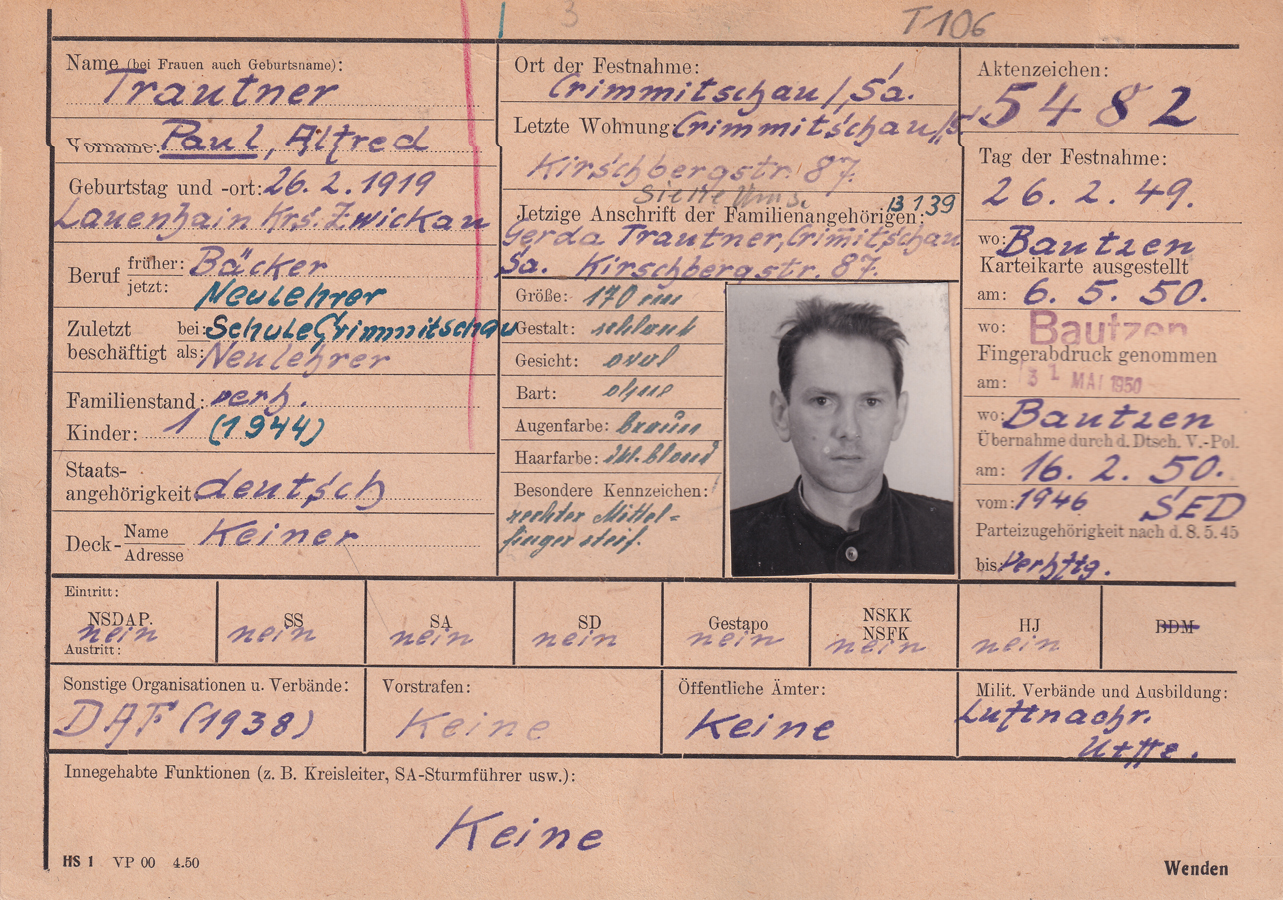 3
T106
Name (bei Frauen auch Geburtsname):
Trautner
Vorname: Paul, Alfred
Geburtstag und -ort: 26. 2. 1919
Lauenhain Krs. Zwickau
Beruf früher: Bäcker
jetzt: Neulehrer
Zuletzt bei: Schule Crimmitschau
beschäftigt als: Neulehrer
Familienstand: verh.
Kinder: 1 (1944)
Staats-
angehörigkeit deutsch
Deck- Name Keiner
Adresse
Ort der Festnahme:
Crimmitschau/Sa.
Letzte Wohnung: Crimmitschau/S
Kirschbergstr. 87.
Siehe Ums. B 139
Jetzige Anschrift der Familienangehörigen:
Gerda Trautner, Crimitschau
Sa. Kirschbergstr. 87.
Größe: 170 cm
Gestalt: schlank
Gesicht: oval
Bart: ohne
Augenfarbe: braun
Haarfarbe: dkl. blond
Besondere Kennzeichen:
rechter Mittel=
finger steif.
Aktenzeichen:
5482
Tag der Festnahme:
26. 2. 49.
wo: Bautzen
Karteikarte ausgestellt
am: 6. 5. 50.
wo: Bautzen
Fingerabdruck genommen
am: 31 MAI 1950
wo: Bautzen
Übernahme durch d. Dtsch. V.-Pol.
am: 16. 2. 50.
vom: 1946 SED
Parteizugehörigkeit nach d. 8. 5. 45
bis: Verhftg.
Eintritt:
NSDAP. SS SA SD Gestapo NSKK NSFK HJ BDM
nein nein nein nein nein nein nein
Austritt:
Sonstige Organisationen u. Verbände:
DAF (1938)
Vorstrafen:
Keine
Öffentliche Ämter:
Keine
Milit. Verbände und Ausbildung:
Luftnachr.
Uffz.
Innegehabte Funktionen (z. B. Kreisleiter, SA-Sturmführer usw.):
Keine
HS 1 VP 00 4.50
Wenden